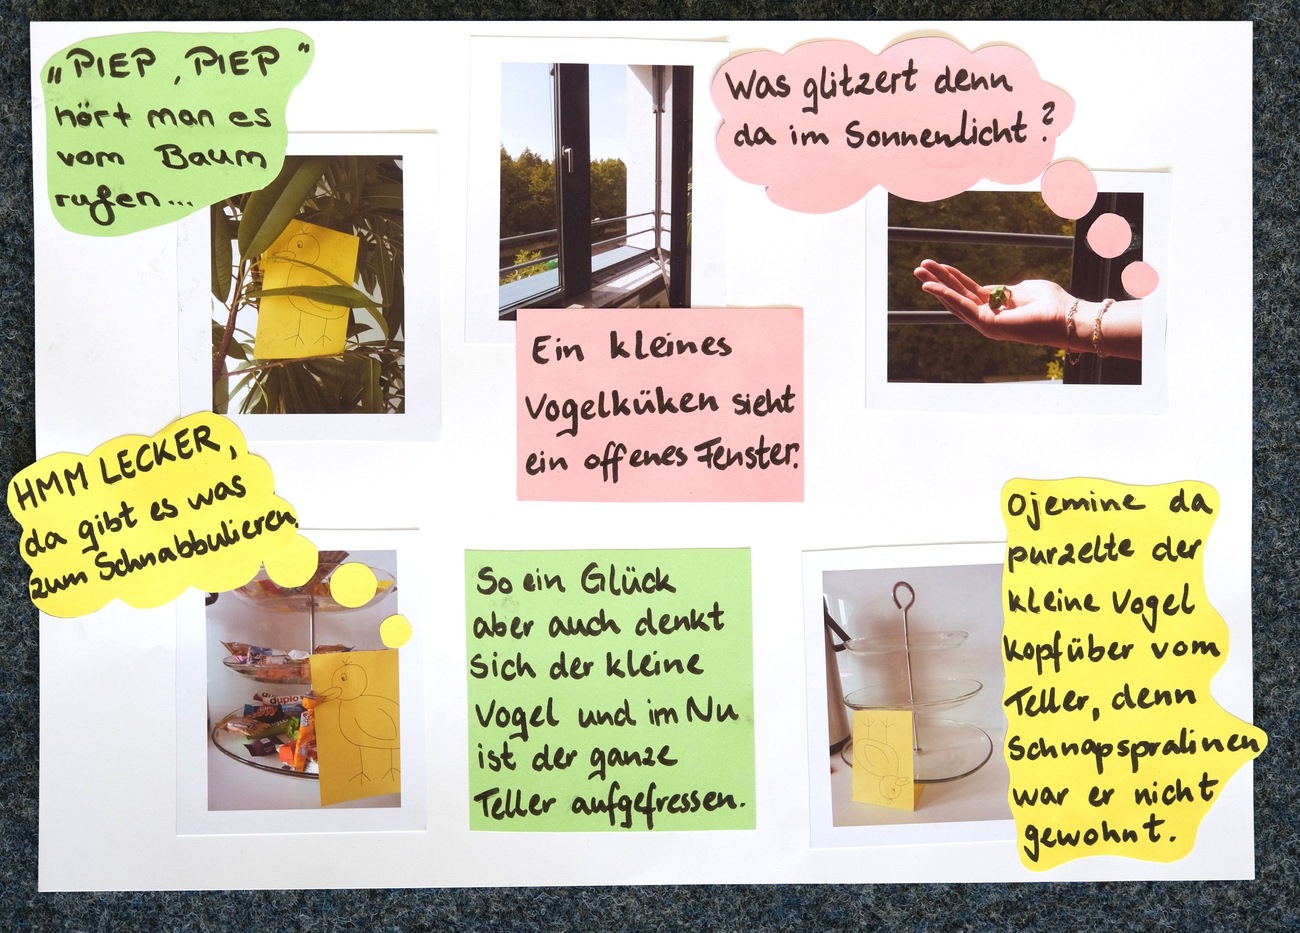 „PIEP, PIEP“
hört man es
vom Baum
rufen...
Ein kleines
Vogelküken sieht
ein offenes Fenster.
Was glitzert denn
da im Sonnenlicht?
HMM LECKER,
da gibt es was
zum Schnabbulieren.
duplo
So ein Glück
aber auch denkt
sich der kleine
Vogel und im Nu
ist der ganze
Teller aufgefressen.
Ojemine da
purzelte der
kleine Vogel
kopfüber vom
Teller, denn
Schnapspralinen
war er nicht
gewohnt.